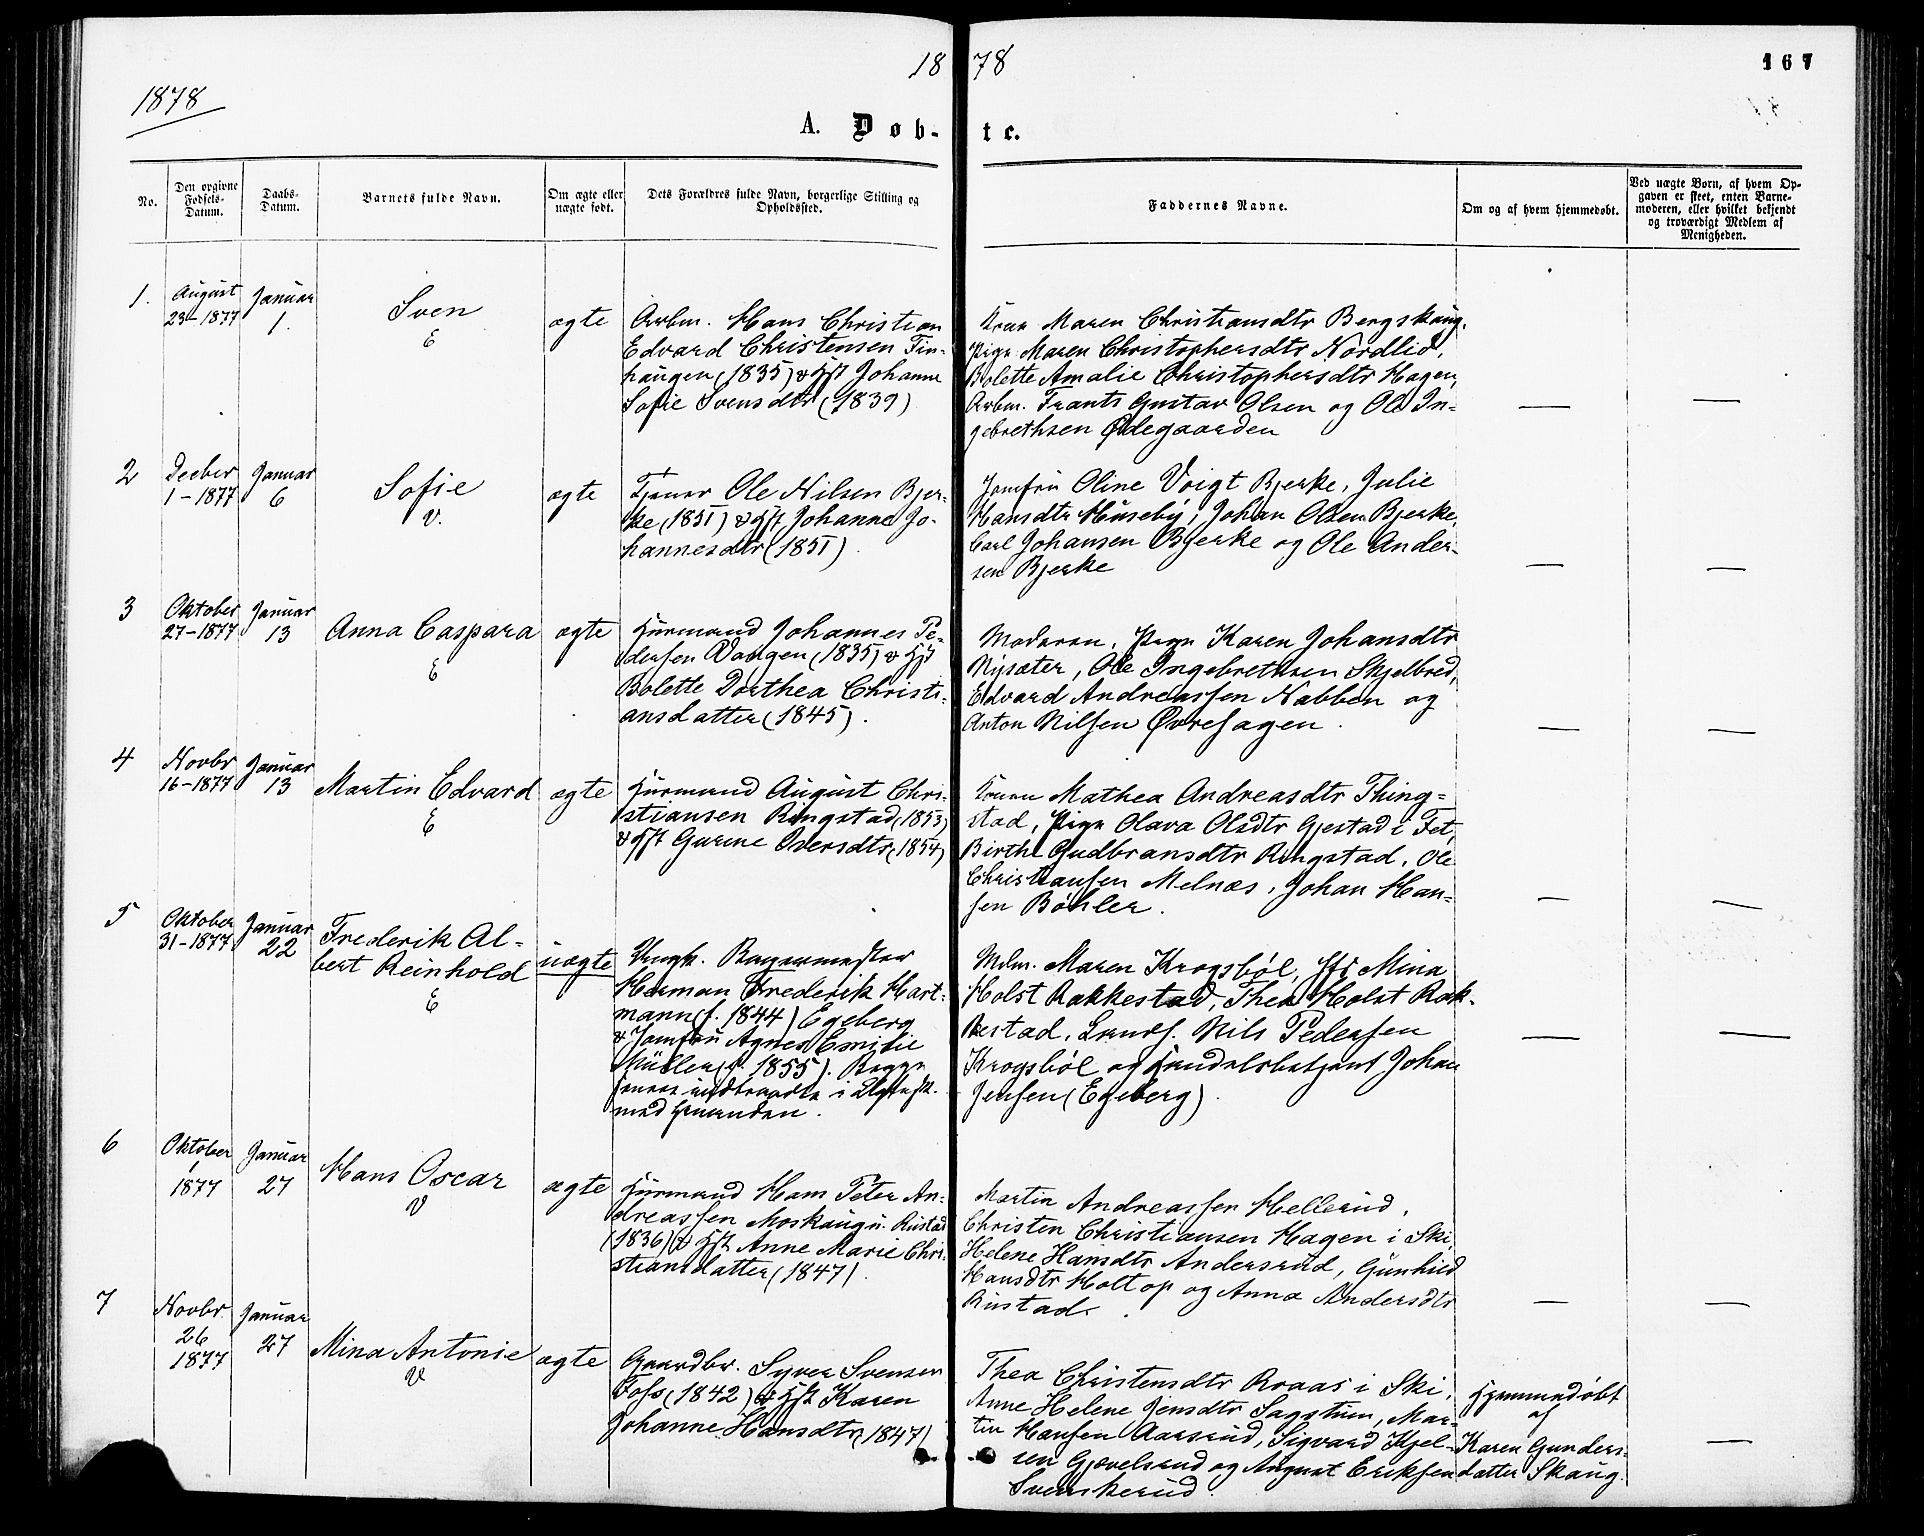 1878
167
1878
A. Døb-
te.
No.
Den opgivne
Fødsels-
Datum.
Daabs-
Datum.
Barnets fulde Navn.
Om ægte eller
uægte født.
Dets Forældres fulde Navn, borgerlige Stilling og
Opholdssted.
Faddernes Navne.
Om og af hvem hjemmedøbt.
Ved uægte Børn, af hvem Op-
gaven er skeet, enten Barne-
moderen, eller hvilket bekjendt
og troværdigt Medlem af
Menigheden.
1.
August
23-1877
Januar
1.
Sven
E
ægte
Arbm. Hans Christian
Edvard Christensen Fin-
haugen (1835) & Hst Johanne
Sofie Svensdtr (1839)
Kone Maren Christiansdtr Bergskaug,
Pige Maren Christophersdtr Nordlid,
Bolette Amalie Christophersdtr Hagen,
Arbm. Frants Gustav Olsen og Ole In-
gebrethsen Ødegaarden
2
Decber
1-1877
Januar
6
Sofie
V.
ægte
Tjener Ole Nilsen Bjer-
ke (1851) & Hst Johanne Jo-
hannesdtr (1851).
Jomfru Oline Voigt Bjerke, Julie
Hansdtr Huseby, Johan Olsen Bjerke,
Carl Johansen Bjerke og Ole Ander-
sen Bjerke
3
Oktober
27-1877
Januar
13
Anna Caspara
E
ægte
Husmand Johannes Pe-
dersen Vangen (1835) & Hst
Bolette Dorthea Christi-
ansdatter (1845).
Moderen, Pige Karen Johansdtr
Nysæter, Ole Ingebrethsen Skjelbred,
Edvard Andreassen Nabben og
Anton Nilsen Øvresagen.
4
Novbr
16-1877
Januar
13
Martin Edvard
E
ægte
Husmand August Chri-
stiansen Ringstad (1853)
& Hst Gurine Iversdtr (1854)
Konen Mathea Andreasdtr Thing-
stad, Pige Olava Olsdtr Gjestad i Fet,
Birthe Gudbransdtr Ringstad, Ole
Christiansen Melnæs, Johan Han-
sen Bøhler.
5
Oktober
31-1877
Januar
22
Frederik Al-
bert Reinhold
E
uægte
Ungk. Bagermester
Herman Frederik Hart-
mann (f. 1844) Egeberg
& Jomfru Agnes Emilie
Müller (f. 1855). Begge
senere indtraadte i Ægtesk.
med hinanden.
Mdm. Maren Krogsbøl, Jfr Mina
Holst Rakkestad, Thea Holst Rak-
kestad, Nils Pedersen
Krogsbøl og Handelsbetjent Johan
Jensen (Egeberg).
6
Oktober
1
1877
Januar
27
Hans Oscar
V
ægte
Husmand Hans Peter An-
dreassen Moskaug u. Rustad
(1836) & Hst Anne Marie Chri-
stiansdatter (1847).
Martin Andreassen Hellerud,
Christen Christiansen Hagen i Ski,
Helene Hansdtr Andersrud, Gunhild
Hansdtr Holtop og Anna Andersdtr
Rustad.
7
Novbr.
26
1877
Januar
27
Mina Antonie
V
ægte
Gaardbr. Syver Svensen
Foss (1842) & Hst Karen
Johanne Hansdtr (1847)
Thea Christensdtr Raas i Ski,
Anne Helene Jensdtr Sagstuen, Mar-
tin Hansen Aarsrud, Sigvard Kjel-
sen Gjevelsrud og August Eriksen
Svenskerud.
Hjemmedøbt
af
Karen Gunders-
datter Skaug.